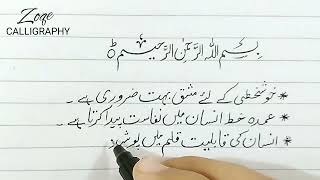 Zoqe
CALLIGRAPHY
بسم اللہ الرحمٰن الرحیم
* خوشخطی کے لئے مشق بہت ضروری ہے ۔
* عمدہ خط انسان میں نفاست پیدا کرتا ہے ۔
* انسان کی قابلیت قلم میں پوشید